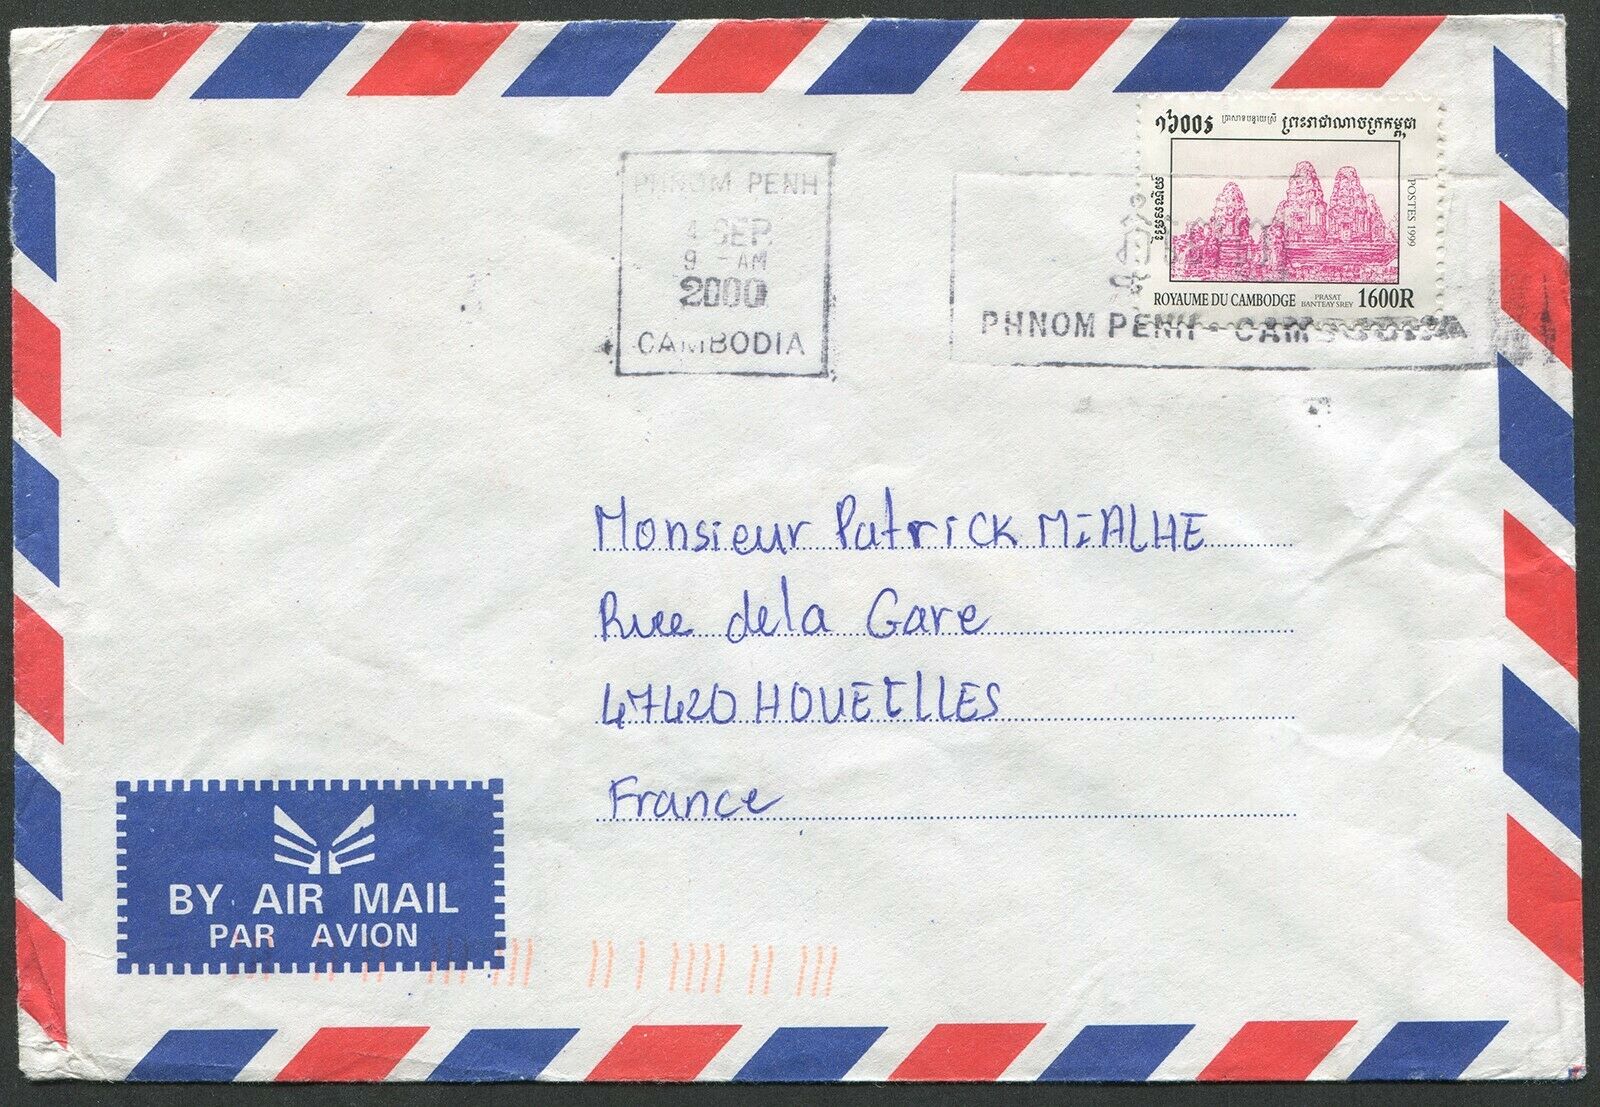 ១៦០០៛ ប្រាសាទបន្ទាយស្រី ព្រះរាជាណាចក្រកម្ពុជា
POSTES 1999
ROYAUME DU CAMBODGE PRASAT BANTEAY SREY 1600R
PHNOM PENH
4 SEP.
9 - AM
2000
CAMBODIA
PHNOM PENH - CAMBODIA
Monsieur Patrick MiALHE
Rue de la Gare
47420 HOUEILLES
France
BY AIR MAIL
PAR AVION